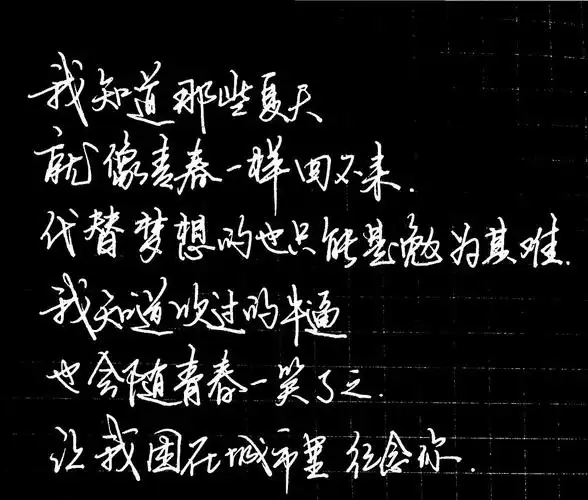 我知道那些夏天
就像青春一样回不来.
代替梦想的也只能是勉为其难.
我知道吹过的牛逼
也会随青春一笑了之.
让我困在城市里 纪念你.